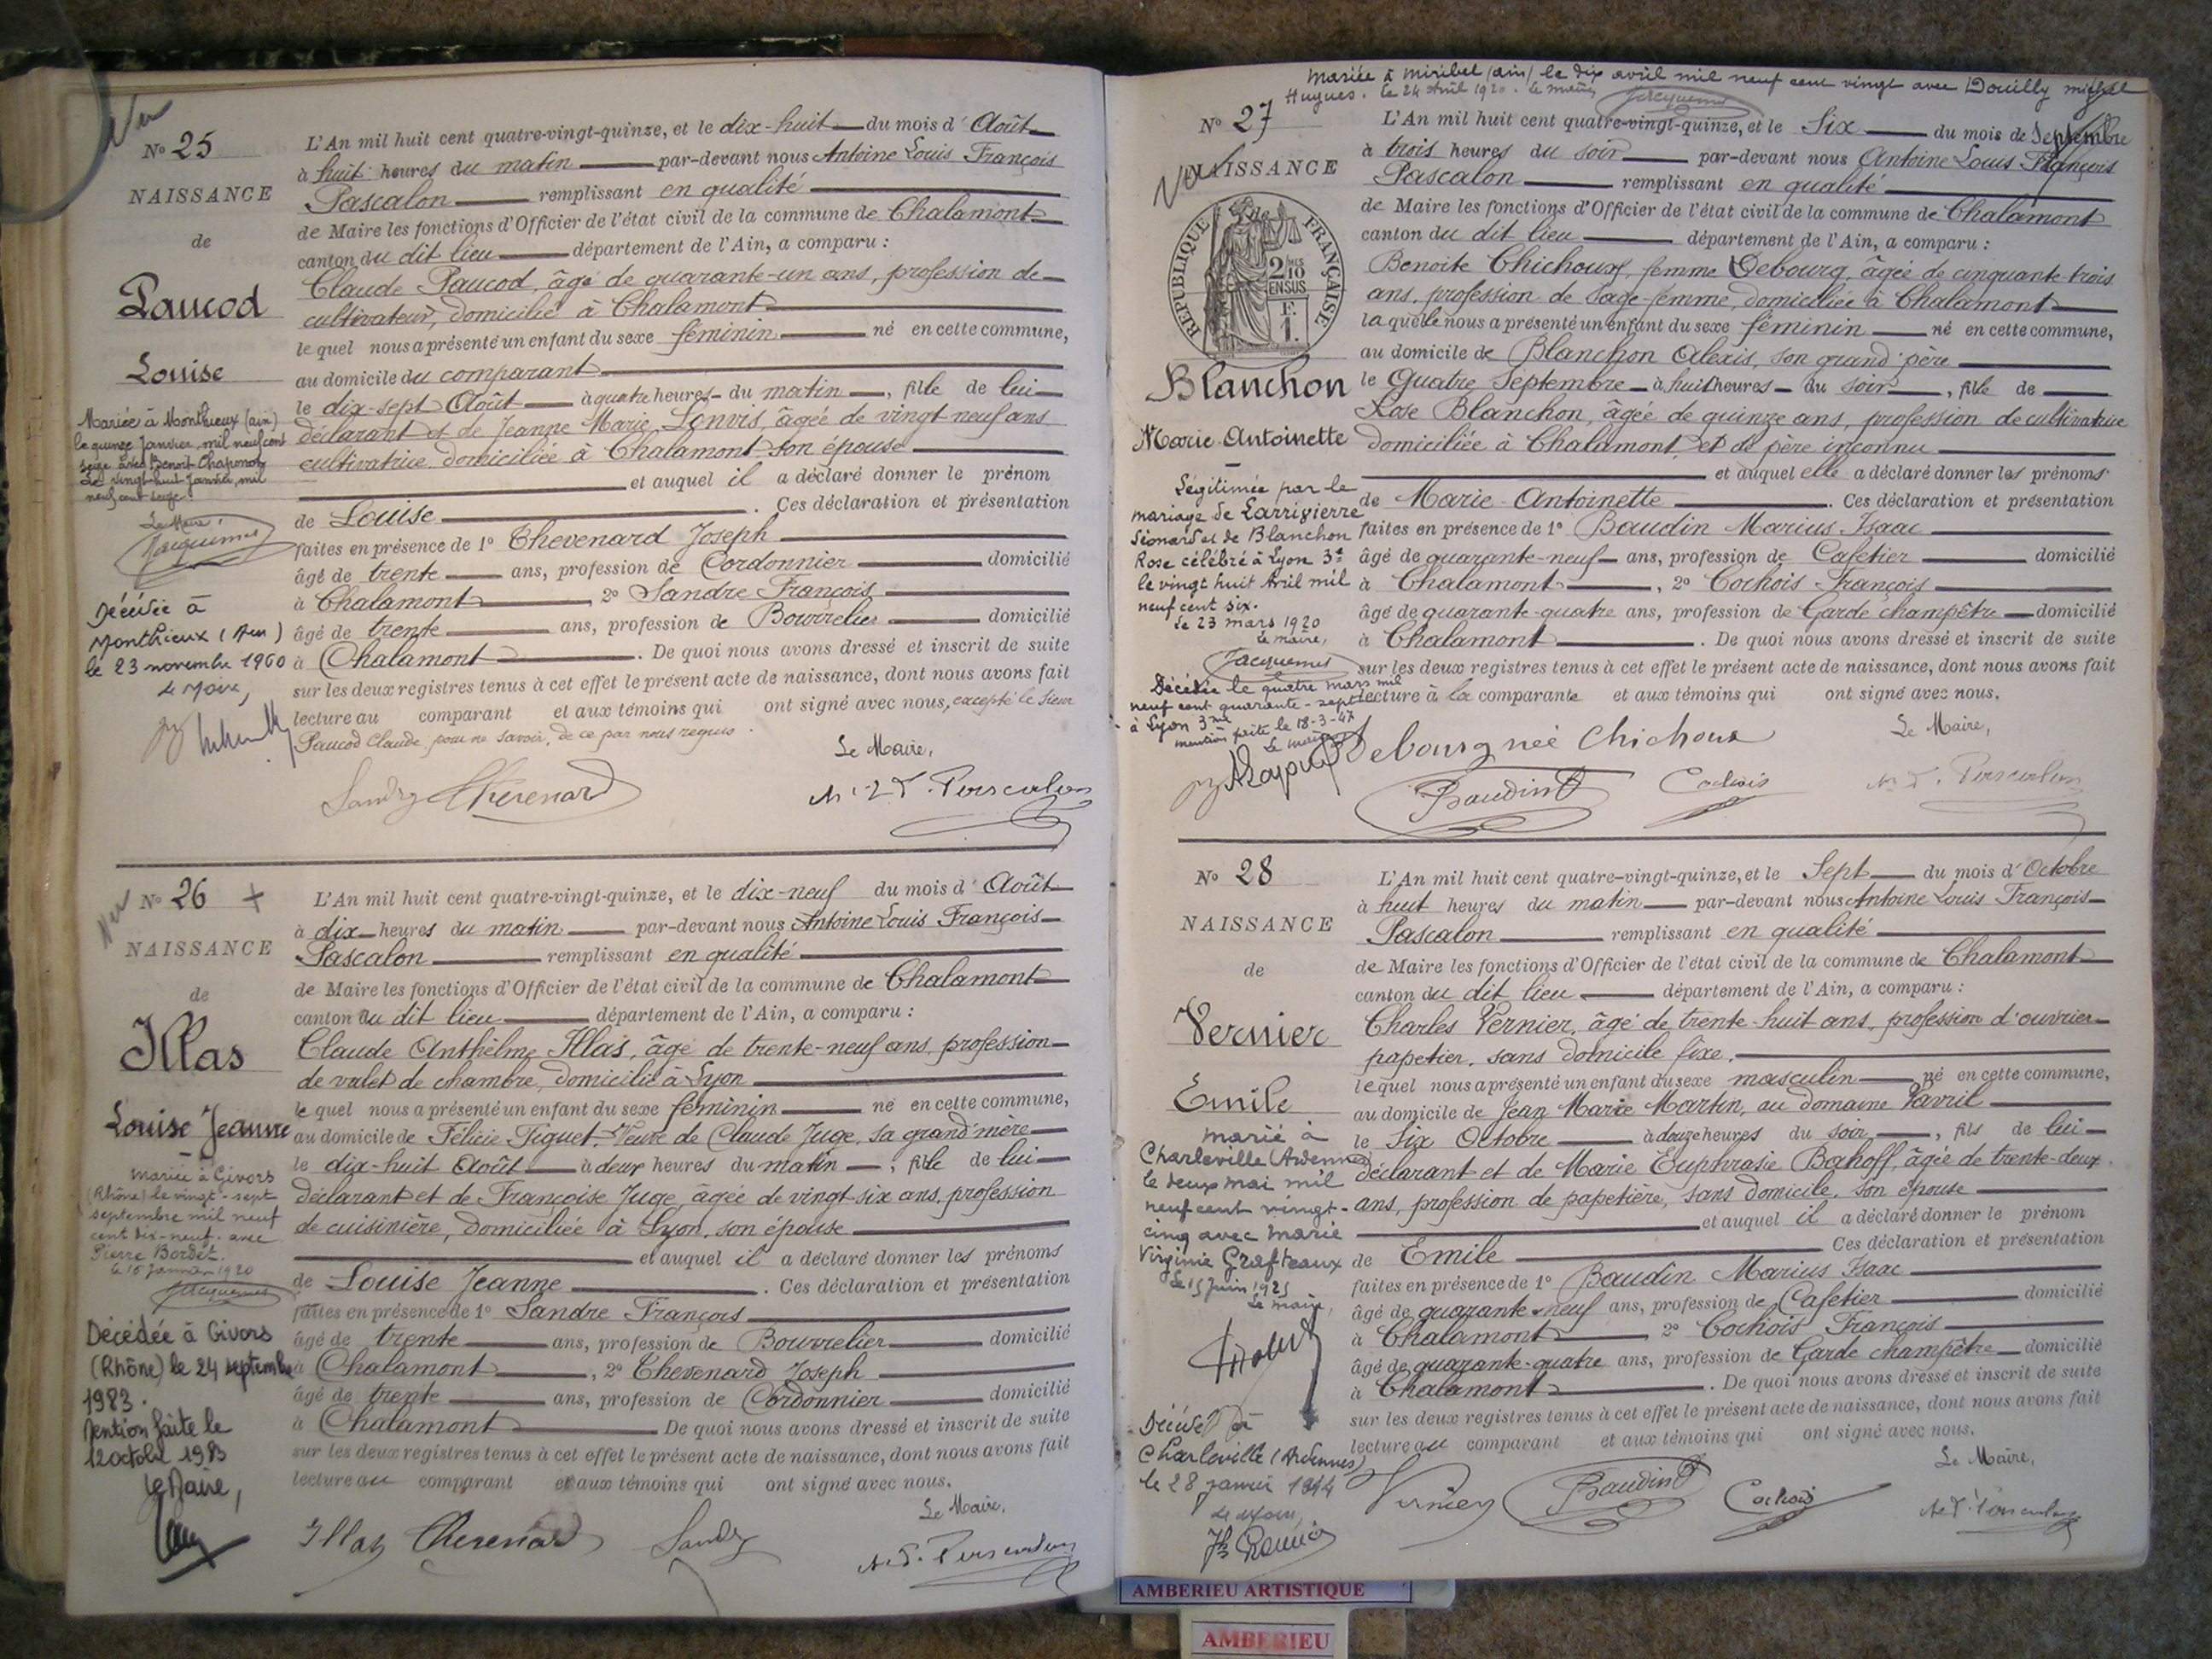 Nº 25
NAISSANCE
de
Paucod
Louise
Mariée à Monthieux (ain)
le quinze Janvier mil neuf cent
seize avec Benoit Chaponod
Le vingt-huit Janvier mil
neuf cent seize
Le Maire,
Jacquemes
Décédée à
Monthieux (Ain)
le 23 novembre 1960
Le Maire,
L'An mil huit cent quatre-vingt-quinze, et le dix-huit du mois d'Août
à huit heures du matin par-devant nous Antoine Louis François
Pascalon remplissant en qualité
de Maire les fonctions d'Officier de l'état civil de la commune de Chalamont
canton du dit lieu département de l'Ain, a comparu :
Claude Paucod, âgé de quarante-un ans, profession de
cultivateur, domicilié à Chalamont
lequel nous a présenté un enfant du sexe féminin né en cette commune,
au domicile du comparant
le dix-sept Août à quatre heures du matin, fille de lui
déclarant et de Jeanne Marie Lonvis, âgée de vingt neuf ans
cultivatrice domiciliée à Chalamont son épouse
et auquel il a déclaré donner le prénom
de Louise. Ces déclaration et présentation
faites en présence de 1º Thevenard Joseph
âgé de trente ans, profession de Cordonnier domicilié
à Chalamont, 2º Sandre François
âgé de trente ans, profession de Bourrelier domicilié
à Chalamont. De quoi nous avons dressé et inscrit de suite
sur les deux registres tenus à cet effet le présent acte de naissance, dont nous avons fait
lecture au comparant et aux témoins qui ont signé avec nous, excepté le sieur
Paucod Claude pour ne savoir, de ce par nous requis.
Le Maire,
Sandre Thevenard A. L. F. Pascalon
Nº 26 +
NAISSANCE
de
Illas
Louise Jeanne
mariée à Givors
(Rhône) le vingt-sept
septembre mil neuf
cent dix-neuf avec
Pierre Bordet.
Le 15 Janvier 1920
Jacquemes
Décédée à Givors
(Rhône) le 24 septembre
1983.
Mention faite le
12 octobre 1983
Le Maire,
L'An mil huit cent quatre-vingt-quinze, et le dix-neuf du mois d'Août
à dix heures du matin par-devant nous Antoine Louis François
Pascalon remplissant en qualité
de Maire les fonctions d'Officier de l'état civil de la commune de Chalamont
canton du dit lieu département de l'Ain, a comparu :
Claude Anthelme Illas, âgé de trente-neuf ans, profession
de valet de chambre, domicilié à Lyon
lequel nous a présenté un enfant du sexe féminin né en cette commune,
au domicile de Félicie Tiguet, Veuve de Claude Juge, sa grand'mère
le dix-huit Août à deux heures du matin, fille de lui
déclarant et de Françoise Juge, âgée de vingt-six ans, profession
de cuisinière, domiciliée à Lyon, son épouse
et auquel il a déclaré donner les prénoms
de Louise Jeanne. Ces déclaration et présentation
faites en présence de 1º Sandre François
âgé de trente ans, profession de Bourrelier domicilié
à Chalamont, 2º Thevenard Joseph
âgé de trente ans, profession de Cordonnier domicilié
à Chalamont De quoi nous avons dressé et inscrit de suite
sur les deux registres tenus à cet effet le présent acte de naissance, dont nous avons fait
lecture au comparant et aux témoins qui ont signé avec nous.
Le Maire,
Illas Thevenard Sandre A. L. F. Pascalon
Mariée à Miribel (ain) le dix avril mil neuf cent vingt avec Douilly michel
Hugues. Le 24 Avril 1920. Le maire, Jacquemes
Nº 27
NAISSANCE
REPUBLIQUE FRANÇAISE
2/10 EN SUS
F. 1.
Blanchon
Marie Antoinette
Légitimée par le
mariage de Larrivierre
Léonard et de Blanchon
Rose célébré à Lyon 3e
le vingt huit Avril mil
neuf cent six.
Le 23 mars 1920
Le maire,
Jacquemes
Décédée le quatre mars mil
neuf cent quarante-sept
à Lyon 3me
mention faite le 18-3-47
Le maire
L'An mil huit cent quatre-vingt-quinze, et le Six du mois de Septembre
à trois heures du soir par-devant nous Antoine Louis François
Pascalon remplissant en qualité
de Maire les fonctions d'Officier de l'état civil de la commune de Chalamont
canton du dit lieu département de l'Ain, a comparu :
Benoite Chichoux, femme Debourg, âgée de cinquante-trois
ans, profession de Sage-femme, domiciliée à Chalamont
laquelle nous a présenté un enfant du sexe féminin né en cette commune,
au domicile de Blanchon Alexis, son grand'père
le Quatre Septembre à huit heures du soir, fille de
Rose Blanchon, âgée de quinze ans, profession de cultivatrice
domiciliée à Chalamont et de père inconnu
et auquel elle a déclaré donner les prénoms
de Marie-Antoinette. Ces déclaration et présentation
faites en présence de 1º Baudin Marius Isaac
âgé de quarante-neuf ans, profession de Cafetier domicilié
à Chalamont, 2º Cochois François
âgé de quarante-quatre ans, profession de Garde champêtre domicilié
à Chalamont. De quoi nous avons dressé et inscrit de suite
sur les deux registres tenus à cet effet le présent acte de naissance, dont nous avons fait
lecture à la comparante et aux témoins qui ont signé avec nous.
Le Maire,
Debourg née Chichoux
Baudin Cochois A. L. F. Pascalon
Nº 28
NAISSANCE
de
Vernier
Emile
marié à
Charleville (Ardennes)
le deux mai mil
neuf cent vingt-
cinq avec Marie
Virginie Grafteaux
Le 15 Juin 1925
Le maire,
Décédé à
Charleville (Ardennes)
le 28 janvier 1944
Le Maire,
L'An mil huit cent quatre-vingt-quinze, et le Sept du mois d'Octobre
à huit heures du matin par-devant nous Antoine Louis François
Pascalon remplissant en qualité
de Maire les fonctions d'Officier de l'état civil de la commune de Chalamont
canton du dit lieu département de l'Ain, a comparu :
Charles Vernier, âgé de trente-huit ans, profession d'ouvrier
papetier, sans domicile fixe,
lequel nous a présenté un enfant du sexe masculin né en cette commune,
au domicile de Jean Marie Martin, au domaine Vavril
le Six Octobre à douze heures du soir, fils de lui
déclarant et de Marie Euphrasie Bahoff, âgée de trente-deux
ans, profession de papetière, sans domicile, son épouse
et auquel il a déclaré donner le prénom
de Emile Ces déclaration et présentation
faites en présence de 1º Baudin Marius Isaac
âgé de quarante neuf ans, profession de Cafetier domicilié
à Chalamont 2º Cochois François
âgé de quarante-quatre ans, profession de Garde champêtre domicilié
à Chalamont. De quoi nous avons dressé et inscrit de suite
sur les deux registres tenus à cet effet le présent acte de naissance, dont nous avons fait
lecture au comparant et aux témoins qui ont signé avec nous.
Le Maire,
Vernier Baudin Cochois A. L. F. Pascalon
AMBERIEU ARTISTIQUE
AMBERIEU